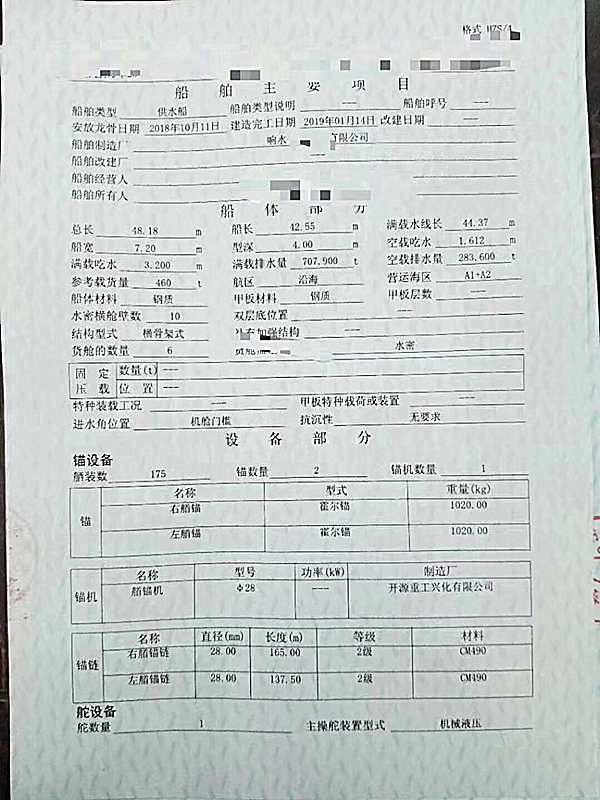 格式 H7S/4
船舶主要项目
船舶类型 供水船 船舶类型说明 --- 船舶呼号 ---
安放龙骨日期 2018年10月11日 建造完工日期 2019年01月14日 改建日期 ---
船舶制造厂 响水 有限公司
船舶改建厂 ---
船舶经营人
船舶所有人
船体部分
总长 48.18 m 船长 42.55 m 满载水线长 44.37 m
船宽 7.20 m 型深 4.00 m 空载吃水 1.612 m
满载吃水 3.200 m 满载排水量 707.900 t 空载排水量 283.600 t
参考载货量 460 t 航区 沿海 营运海区 A1+A2
船体材料 钢质 甲板材料 钢质 甲板层数 ---
水密横舱壁数 10 双层底位置 ---
结构型式 横骨架式 补充加强结构 ---
货舱的数量 6 水密
固定压载 数量(t) ---
位置 ---
特种装载工况 --- 甲板特种载荷或装置 ---
进水角位置 机舱门槛 抗沉性 无要求
设备部分
锚设备
舾装数 175 锚数量 2 锚机数量 1
锚 名称 型式 重量(kg)
右艏锚 霍尔锚 1020.00
左艏锚 霍尔锚 1020.00
锚机 名称 型号 功率(kW) 制造厂
艏锚机 Φ28 --- 开源重工兴化有限公司
锚链 名称 直径(mm) 长度(m) 等级 材料
右艏锚链 28.00 165.00 2级 CM490
左艏锚链 28.00 137.50 2级 CM490
舵设备
舵数量 1 主操舵装置型式 机械液压